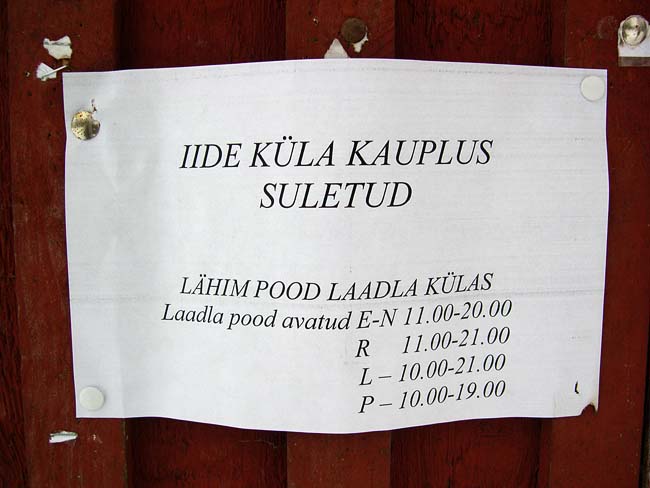 IIDE KÜLA KAUPLUS
SULETUD
LÄHIM POOD LAADLA KÜLAS
Laadla pood avatud E-N 11.00-20.00
R 11.00-21.00
L – 10.00-21.00
P – 10.00-19.00